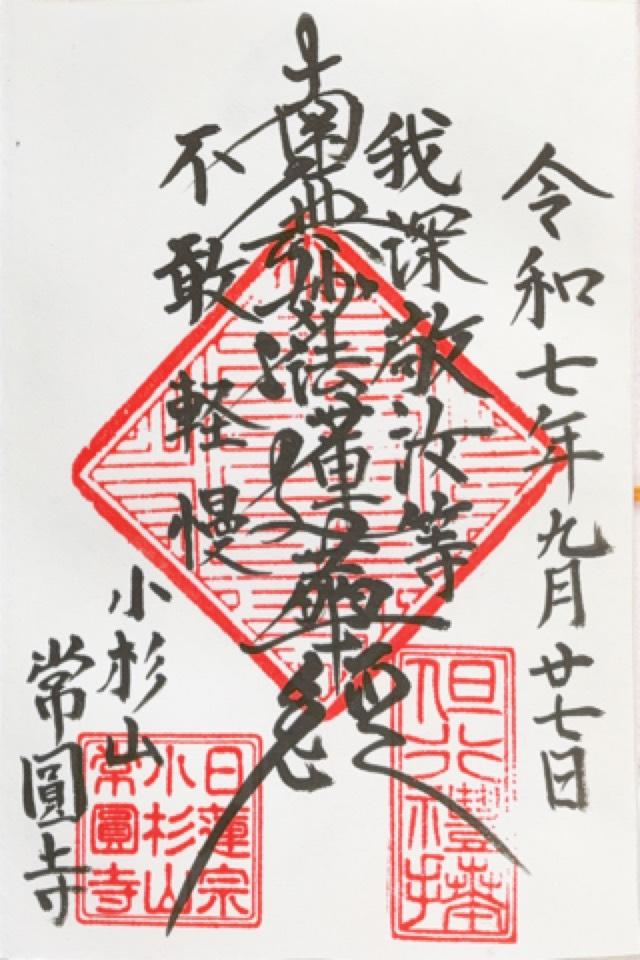 令和七年九月廿七日
我深敬汝等
南無妙法蓮華経
不敢軽慢
小杉山
常圓寺
但行禮拝
日蓮宗
小杉山
常圓寺